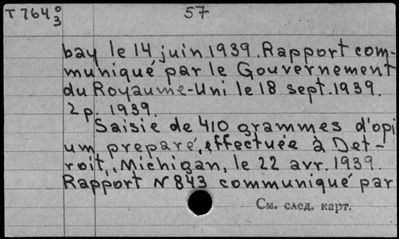 T764⁰₃ 57
bay le 14 juin 1939. Rapport com-
muniqué par le Gouvernement
du Royaume-Uni le 18 sept. 1939.
2 p. 1939.
Saisie de 410 grammes d'opi
um preparé, effectuée à Det-
roit, Michigan, le 22 avr. 1939.
Rapport N 843 communiqué par
См. след. карт.